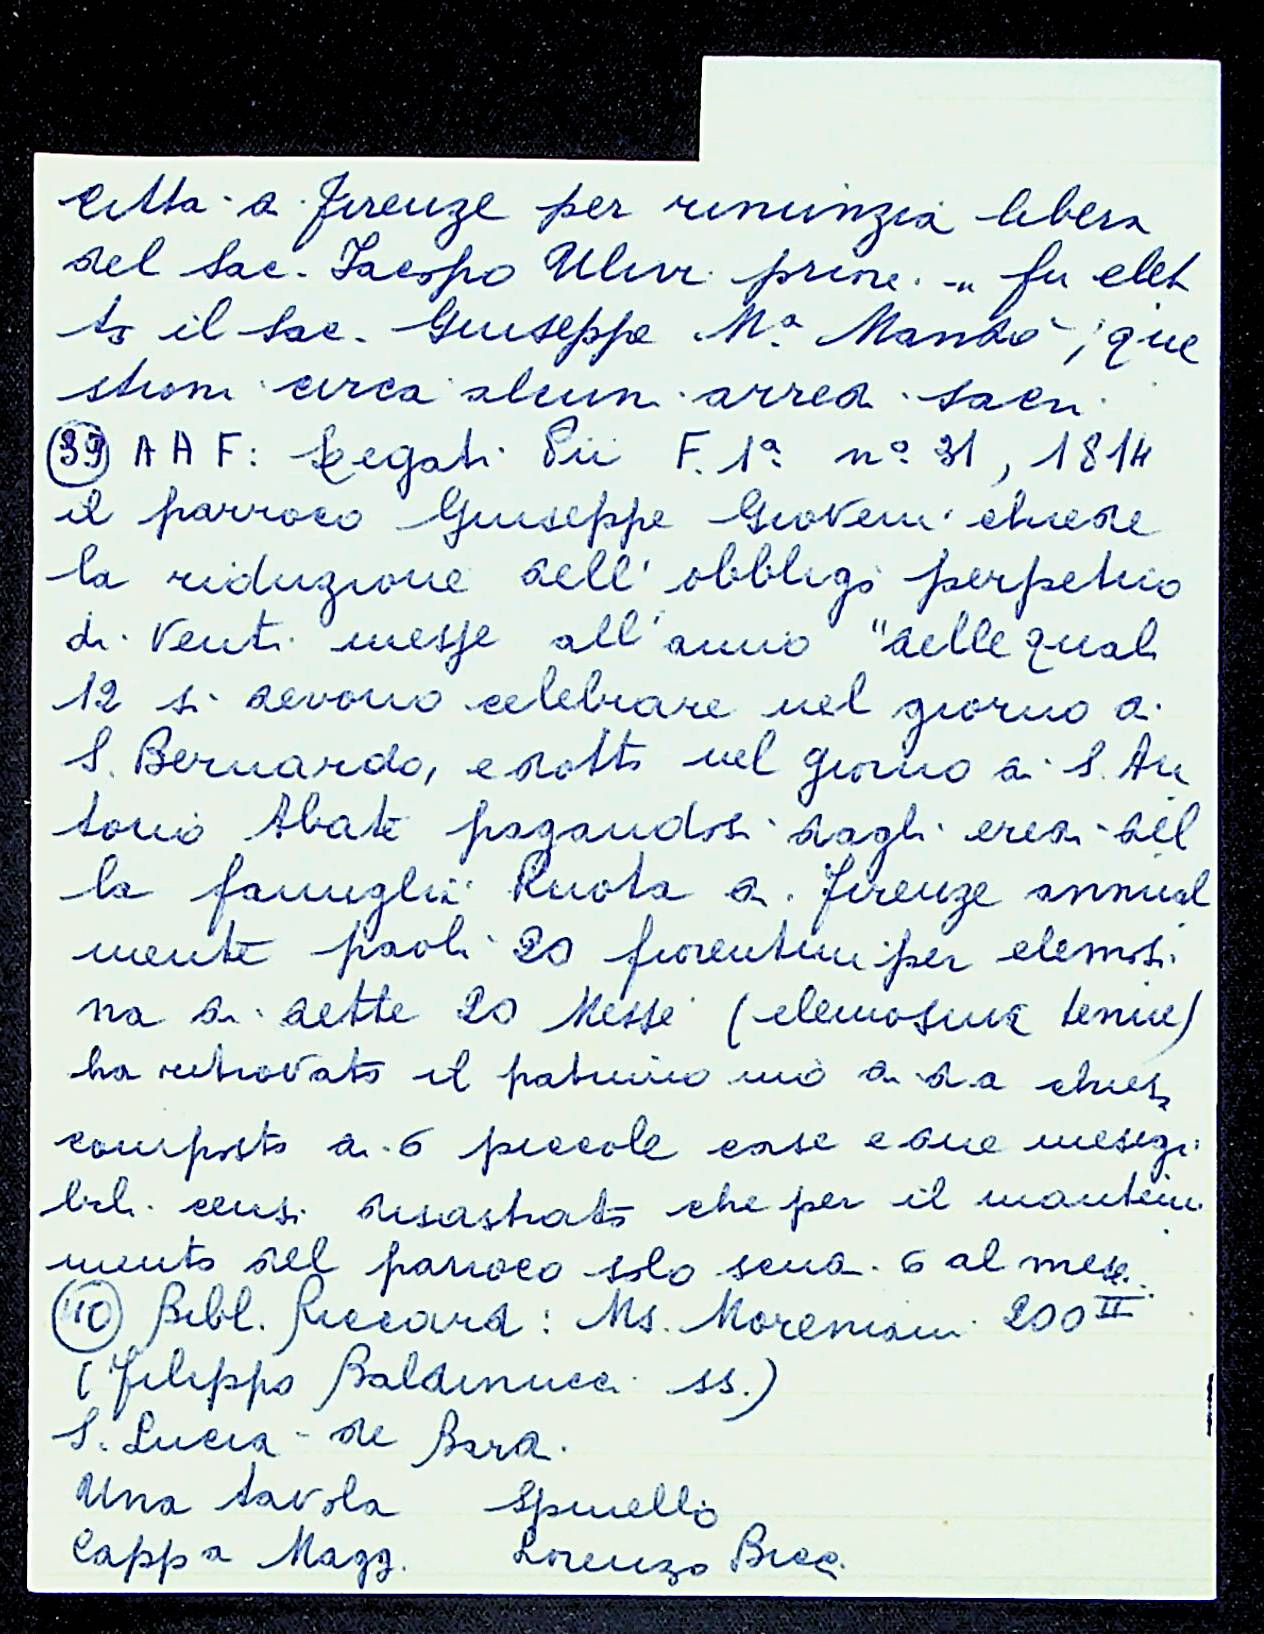 città di Firenze per rinunzia libera
del Sac. Jacopo Ulivi prior. -" fu elet
to il Sac. Giuseppe Mª. , que
stioni circa alcuni arredi sacri.
39 A A F: Legati Pii F. 1ª nº 31, 1814
il parroco Giuseppe Gioveni chiede
la riduzione dell' obbligo perpetuo
di venti messe all'anno "delle quali
12 si devono celebrare nel giorno di
S. Bernardo, e otto nel giorno di S. An
tonio Abate pagandosi dagli eredi del
la famiglia Ruota di Firenze annual
mente paoli 20 fiorentini per elemosi
na di dette 20 Messe (elemosina tenue)
ha ritrovato il patrimonio di d.a chiesa
composto di 6 piccole case e due inesigi
bili censi disastrato che per il manteni
mento del parroco solo scudi 6 al mese.
40 Bibl. Riccard: Ms. Moreniani 200 II
(Filippo Baldinucci ss.)
S. Lucia de Bardi.
Una tavola Spinello
Capp a Magg. Lorenzo Bicci